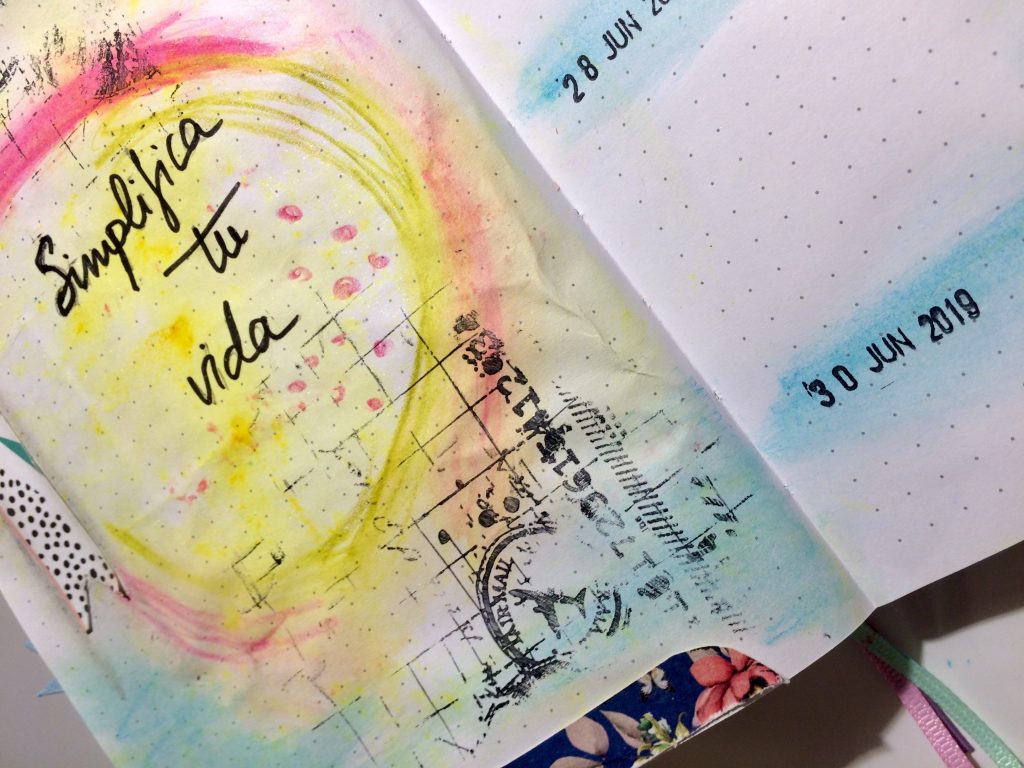 Simplifica
tu
vida
AIR MAIL
28 JUN
30 JUN 2019